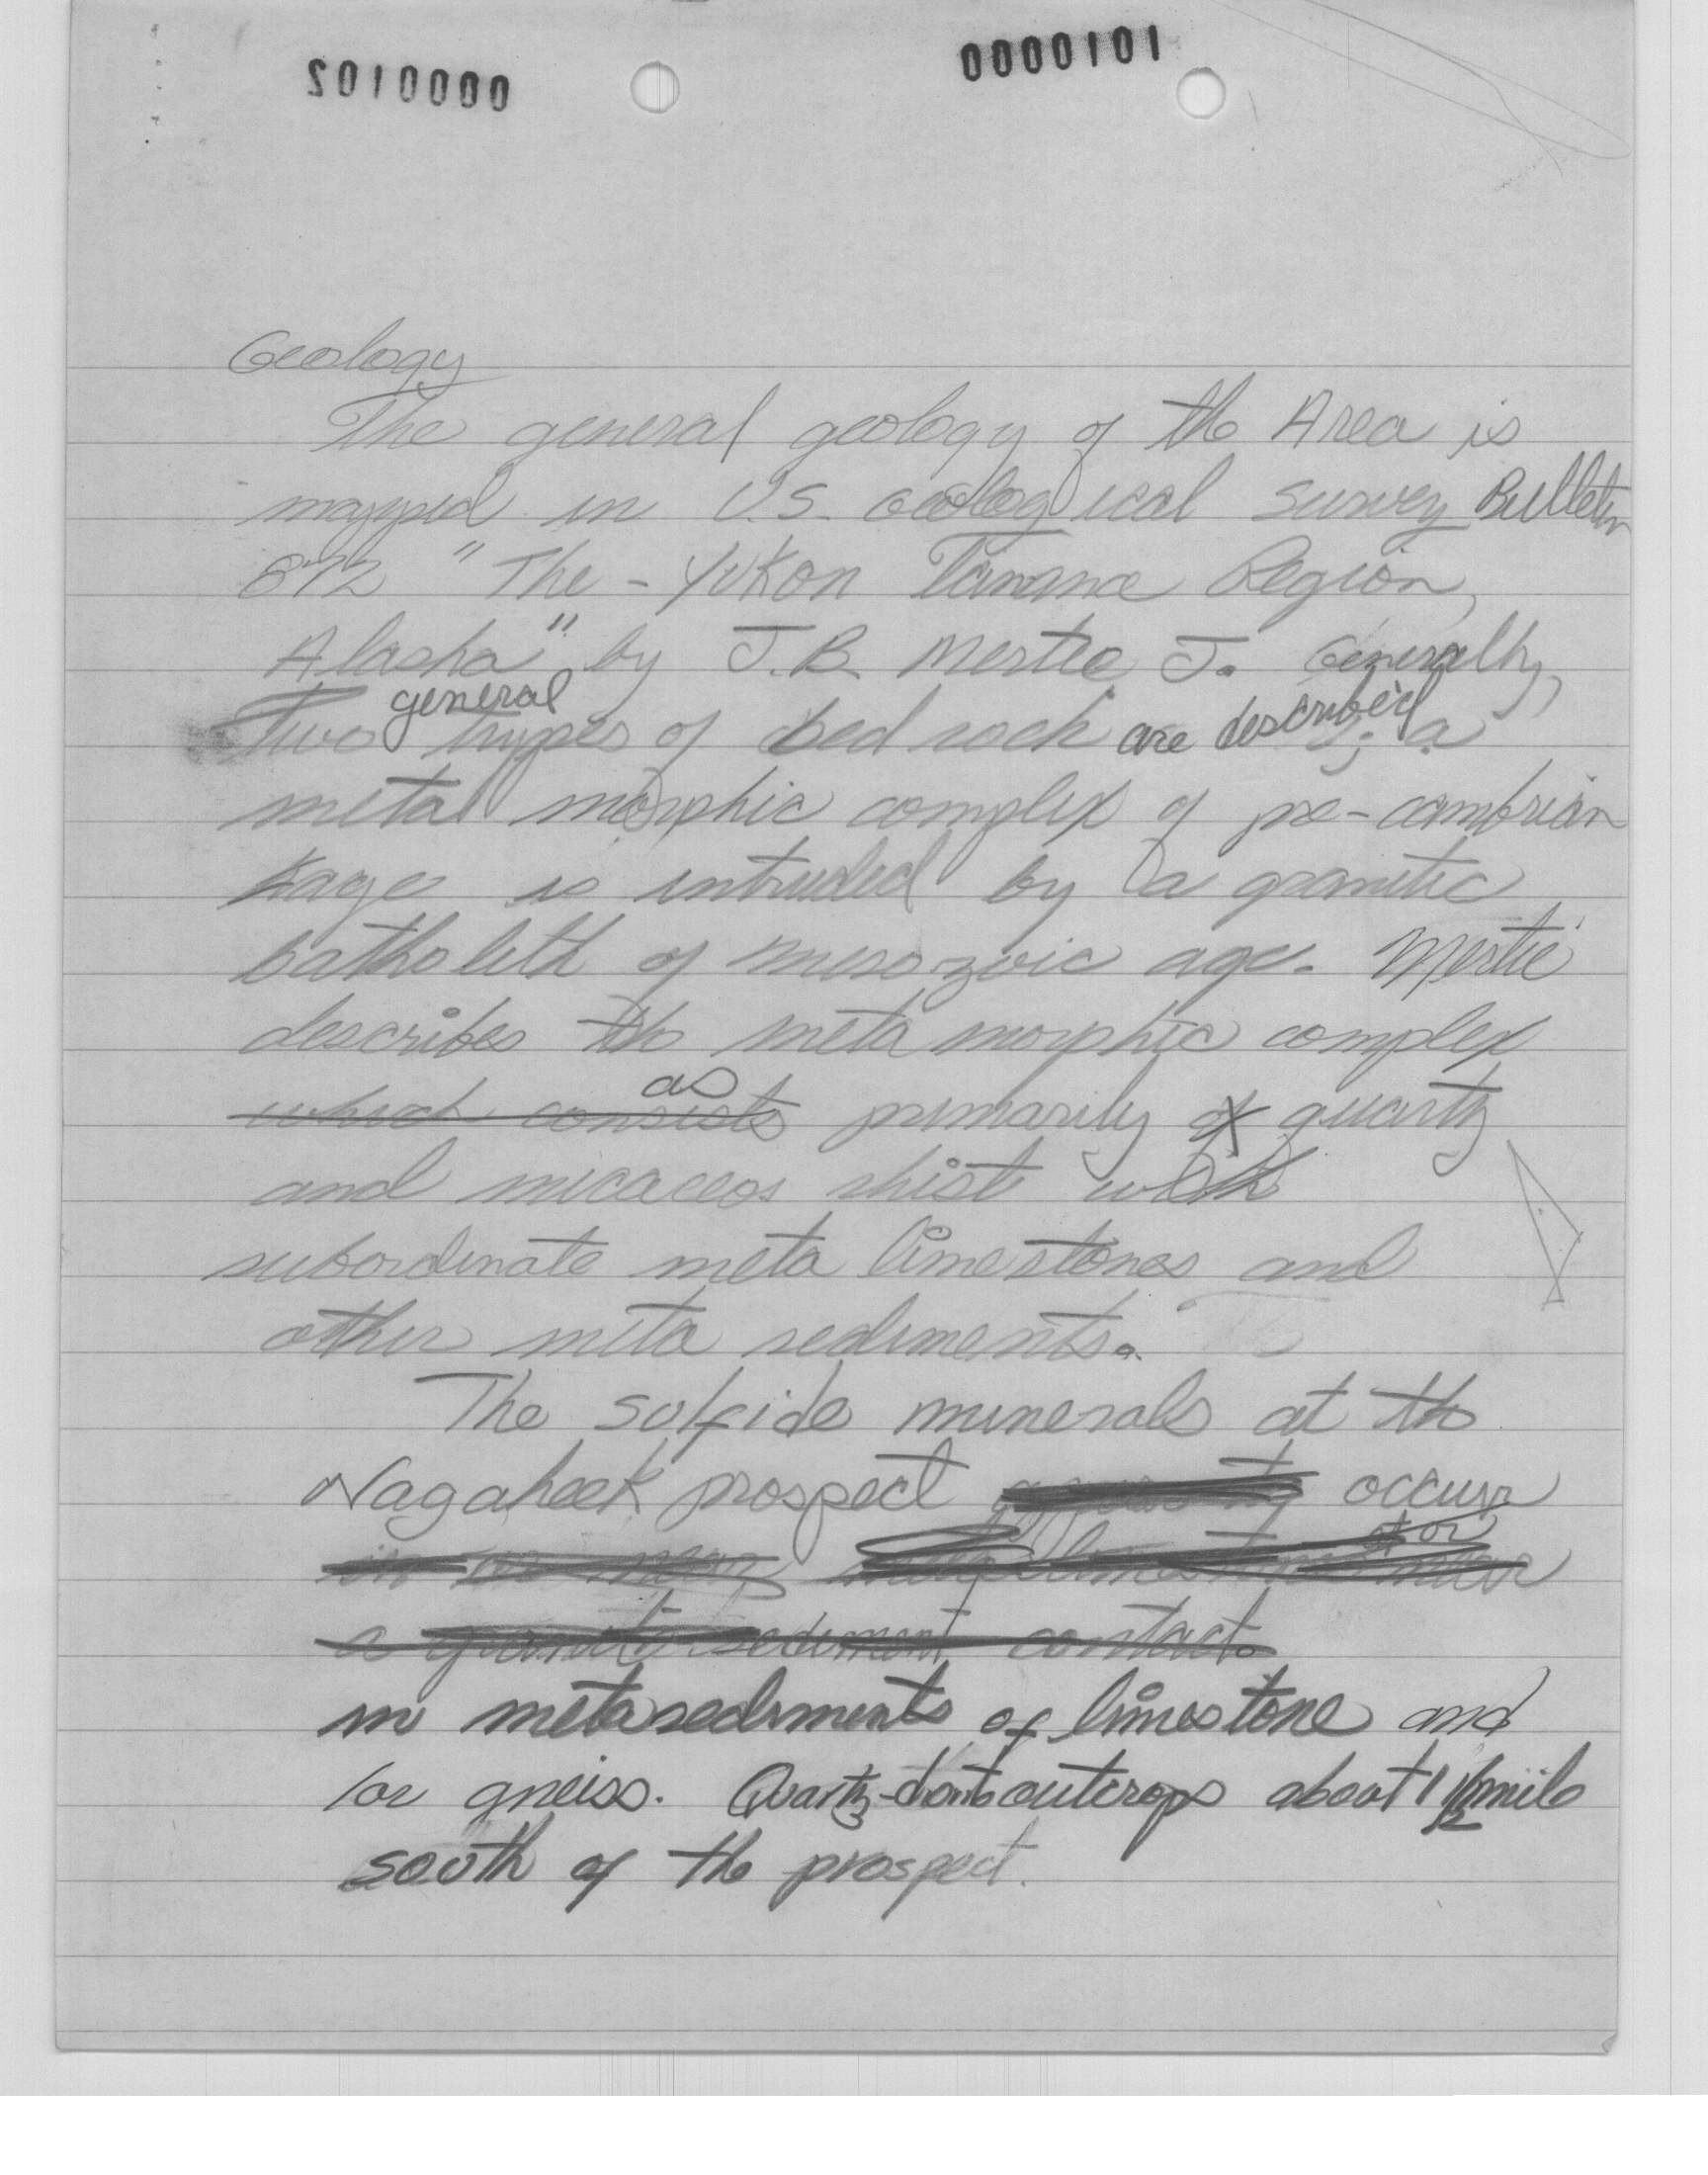 0000101
0000102
Geology
The general geology of the Area is
mapped in U.S. Geological Survey Bulletin
872 "The - Yukon Tanana Region,
Alaska" by J.B. Mertie J. Generally,
general
Two types of bed rock are described; a
meta morphic complex of pre-cambrian
age is intruded by a granitic
batholith of mesozoic age. Mertie
describes the meta morphic complex
as
which consists primarily of quartz
and micaceos shist with
subordinate meta limestones and
other meta sediments.
The sulfide minerals at the
prospect occur
at or
in or near meta limestone near
a granite sediment contact.
in metasediments of limestone and
/or gneiss. Quartz outcrops about 1 1/2 mile
south of the prospect.